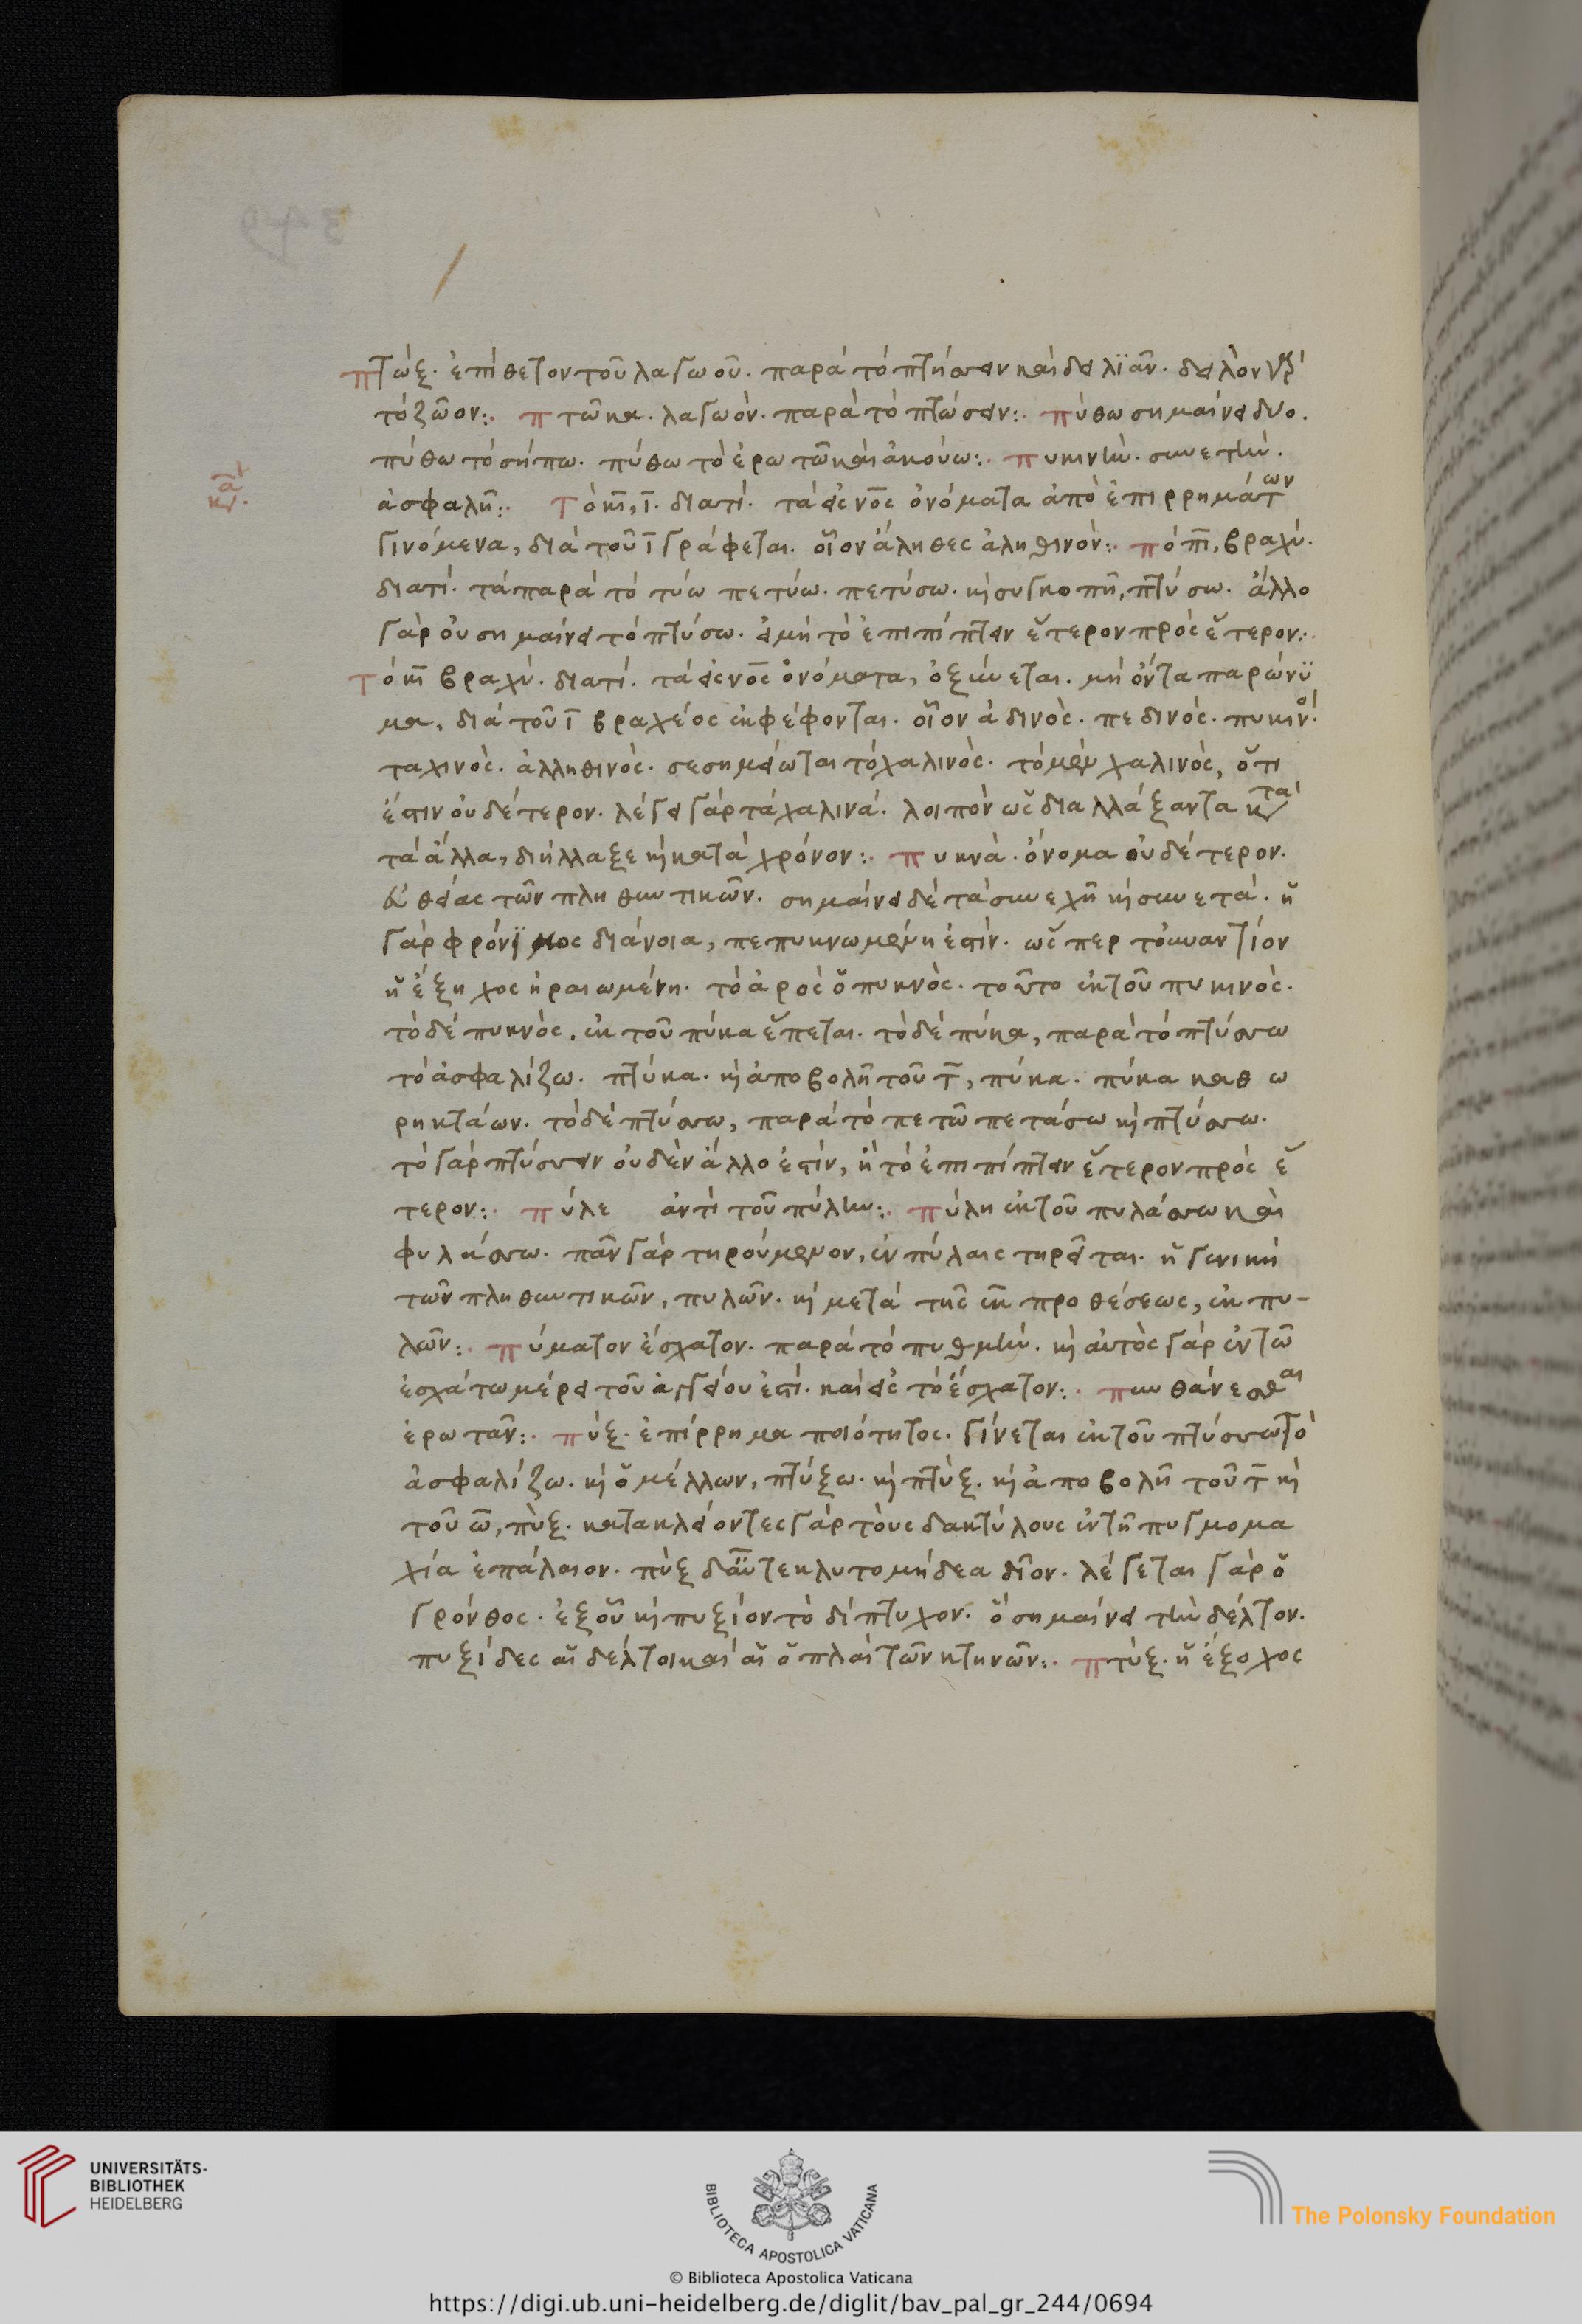 πτώξ· ἐπίθετον τοῦ λαγωοῦ. παρά τό πτήσσειν καί δειλϊᾶν. δειλὸν γάρ
τό ζῶον:. πτῶκα. λαγωόν. παρὰ τὸ πτώσειν:. πύθω σημαίνει δυο.
πύθω τό σήπω. πύθω τὸ ἐρωτῶ καὶ ἀκούω:. πυκινήν. συνετήν.
ἀσφαλῆ:. Τό κῑ, ῑ. διατί. τά εἰς νο̄ς ὀνόματα ἀπὸ ἐπιρρημάτων
γινόμενα, διά τοῦ ῑ γράφεται. οἷον ἄληθες ἀληθινόν:. πό πῑ, βραχύ.
διατί. τά παρά τό τύω πετύω. πετύσω. κ συγκοπῆ, πτύσω. ἄλλο
γάρ οὐ σημαίνει τό πτύσω. εἰ μή τὸ ἐπιπίπτειν ἕτερον πρός ἕτερον:.
Τό κῑ βραχύ. διατί. τά εἰς νο̄ς ὀνόματα, ὀξύνεται. μή ὄντα παρώνϋ
μα, διά τοῦ ῑ βραχέος ἐκφέφονται. οἷον ἁδινὸς. πεδινὸς. πυκινός.
ταχινὸς. ἀλληθινὸς. σεσημείωται τό χαλινὸς. τό μέν χαλινὸς, ὅτι
ἐστιν οὐδέτερον. λέγει γάρ τά χαλινά. λοιπόν ὡς διαλλάξαντα κατά
τά ἄλλα, διήλλαξε κ κατά χρόνον:. πυκνὰ. ὄνομα οὐδέτερον.
εὐθείας τῶν πληθυντικῶν. σημαίνει δέ τά συνεχῆ κ συνετά. ἡ
γάρ φρόνϊμος διάνοια, πεπυκνωμένη ἐστίν. ὥσπερ τοὐναντίον
ἡ ἔξηχος ἠραιωμένη. τὸ ἀρσ ὁ πυκνὸς. τοῦτο ἐκ τοῦ πυκινὸς.
τὸ δέ πυκνὸς, ἐκ τοῦ πύκα ἕπεται. τὸ δέ πύκα, παρὰ τό πτύσσω
τὸ ἀσφαλίζω. πτύκα. κ ἀποβολῆ τοῦ τ̄, πύκα. πύκα καθ ω
ρηκτάων. τὸ δέ πτύσσω, παρά τό πετῶ πετάσω κ πτύσσω.
τό γάρ πτύσσειν οὐδὲν ἄλλο ἐστίν, ἢ τό ἐπιπίπτειν ἕτερον πρός ἕ
τερον:. πύλε ἀντὶ τοῦ πύλην:. πύλη ἐκ τοῦ πυλάσσω καὶ
φυλάσσω. πᾶν γάρ τηρούμενον, ἐν πύλαις τηρεῖται. ἡ γενική
τῶν πληθυντικῶν, πυλῶν. κ μετά τῆς ε̄κ προθέσεως, ἐκ πυ-
λῶν:. πύματον ἔσχατον. παρά τό πυθμήν. κ αὐτὸς γάρ ἐν τῶ
ἐσχάτω μέρει τοῦ ἀγγείου ἐστί. καί εἰς τό ἔσχατον:. πυνθάνεσθαι
ἐρωτᾶν:. πύξ. ἐπίρρημα ποιότητος. γίνεται ἐκ τοῦ πτύσσω τὸ
ἀσφαλίζω. κ ὁ μέλλων, πτύξω. κ πτὺξ. κ ἀποβολῆ τοῦ τ̄ κ
τοῦ ω̄, πὺξ. κατακλείοντες γάρ τοὺς δακτύλους ἐν τῆ πυγμομα
χία ἐπάλαιον. πὺξ δαῦτε κλυτομήδεα δῖον. λέγεται γάρ ὁ
γρόνθος. ἐξ οὗ κ πυξίον τὸ δίπτυχον. ὅ σημαίνει τήν δέλτον.
πυξίδες αἱ δέλτοι καί αἱ ὁπλαί τῶν κτηνῶν:. πτύξ. ἡ ἔξοχος
UNIVERSITÄTS-
BIBLIOTHEK
HEIDELBERG
BIBLIOTECA APOSTOLICA VATICANA
The Polonsky Foundation
© Biblioteca Apostolica Vaticana
https://digi.ub.uni-heidelberg.de/diglit/bav_pal_gr_244/0694